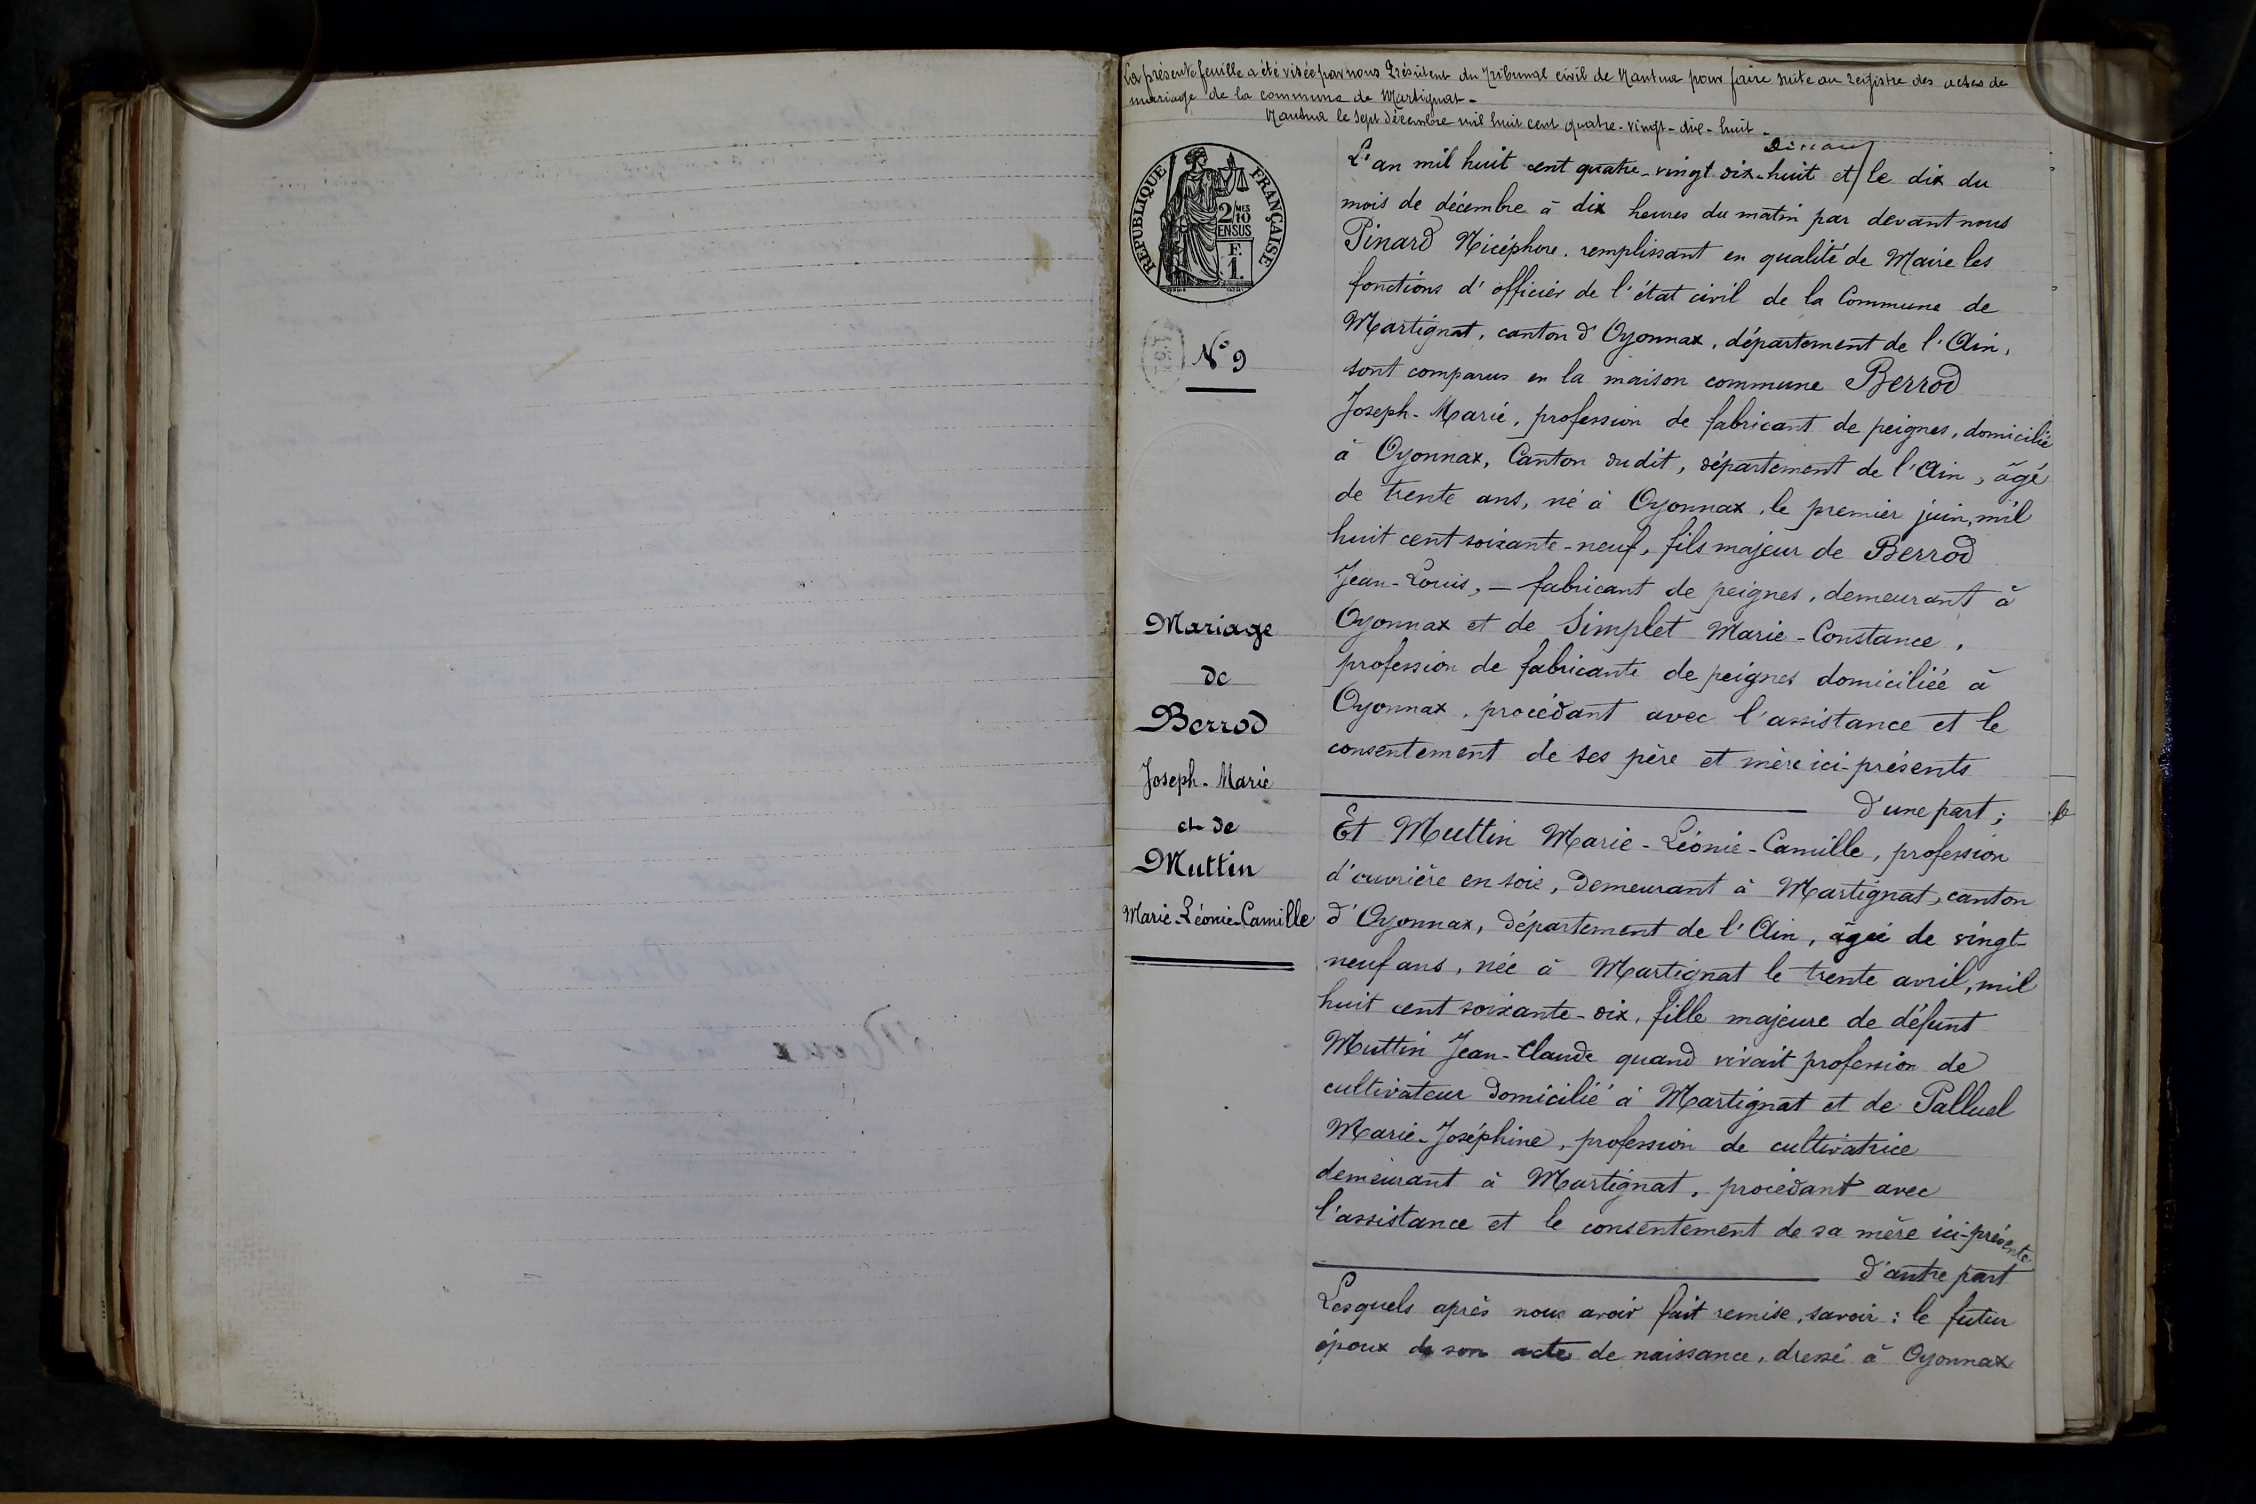 La présente feuille a été visée par nous Président du Tribunal civil de Nantua pour faire suite au registre des actes de
mariage de la commune de Martignat -
Nantua le sept décembre mil huit cent quatre-vingt-dix-huit -
RÉPUBLIQUE FRANÇAISE
2/10 MES
EN SUS
F.
1.
N° 9
Mariage
de
Berrod
Joseph-Marie
et de
Muttin
Marie-Léonie-Camille
L'an mil huit cent quatre-vingt dix-huit et le dix du
mois de décembre à dix heures du matin par devant nous
Pinard Nicéphore, remplissant en qualité de Maire les
fonctions d'officier de l'état civil de la Commune de
Martignat, canton d'Oyonnax, département de l'Ain,
sont comparus en la maison commune Berrod
Joseph-Marie, profession de fabricant de peignes, domicilié
à Oyonnax, Canton dudit, département de l'Ain, âgé
de trente ans, né à Oyonnax, le premier juin, mil
huit cent soixante-neuf, fils majeur de Berrod
Jean-Louis, — fabricant de peignes, demeurant à
Oyonnax et de Simplet Marie-Constance,
profession de fabricante de peignes domiciliée à
Oyonnax, procédant avec l'assistance et le
consentement de ses père et mère ici-présents
d'une part ;
Et Muttin Marie-Léonie-Camille, profession
d'ouvrière en soie, demeurant à Martignat, canton
d'Oyonnax, département de l'Ain, âgée de vingt-
neuf ans, née à Martignat le trente avril, mil
huit cent soixante-dix, fille majeure de défunt
Muttin Jean-Claude quand vivait profession de
cultivateur domicilié à Martignat et de Palluel
Marie-Joséphine, profession de cultivatrice
demeurant à Martignat, procédant avec
l'assistance et le consentement de sa mère ici-présente
d'autre part
Lesquels après nous avoir fait remise, savoir : le futur
époux de son acte de naissance, dressé à Oyonnax